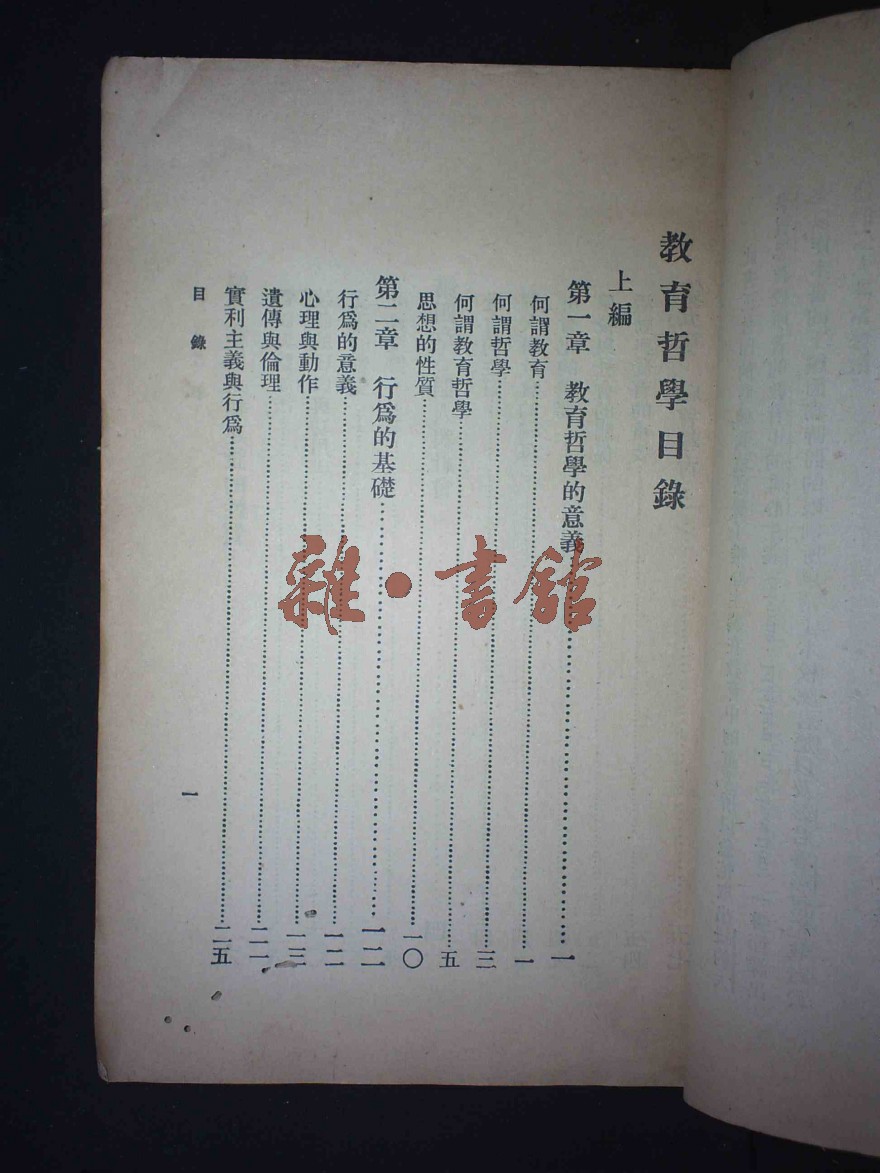 教育哲學目錄
上編
第一章 教育哲學的意義……一
何謂教育……一
何謂哲學……三
何謂教育哲學……五
思想的性質……一〇
第二章 行爲的基礎……一二
行爲的意義……一二
心理與動作……一三
遺傳與倫理……二一
實利主義與行爲……二五
目錄
一
雜·書館